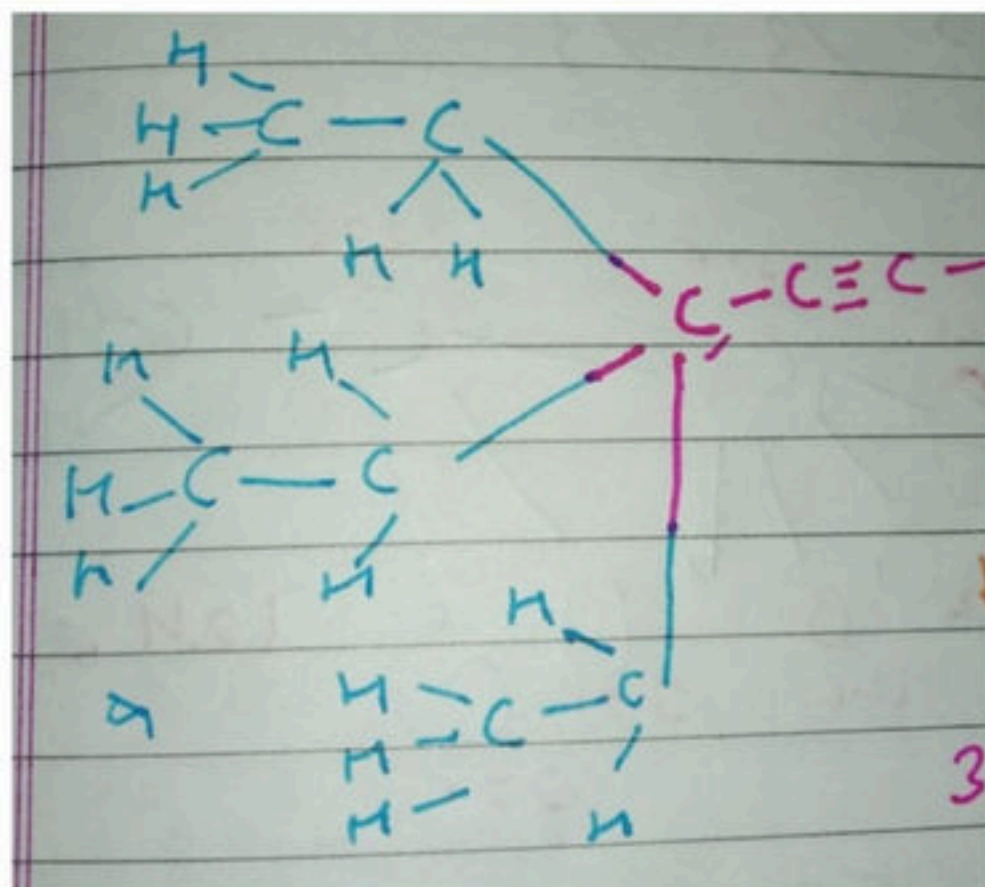 H
H - C - C
H
H H
C - C ≡ C -
H H
H - C - C
H H
H
H C - C
H
H H
3